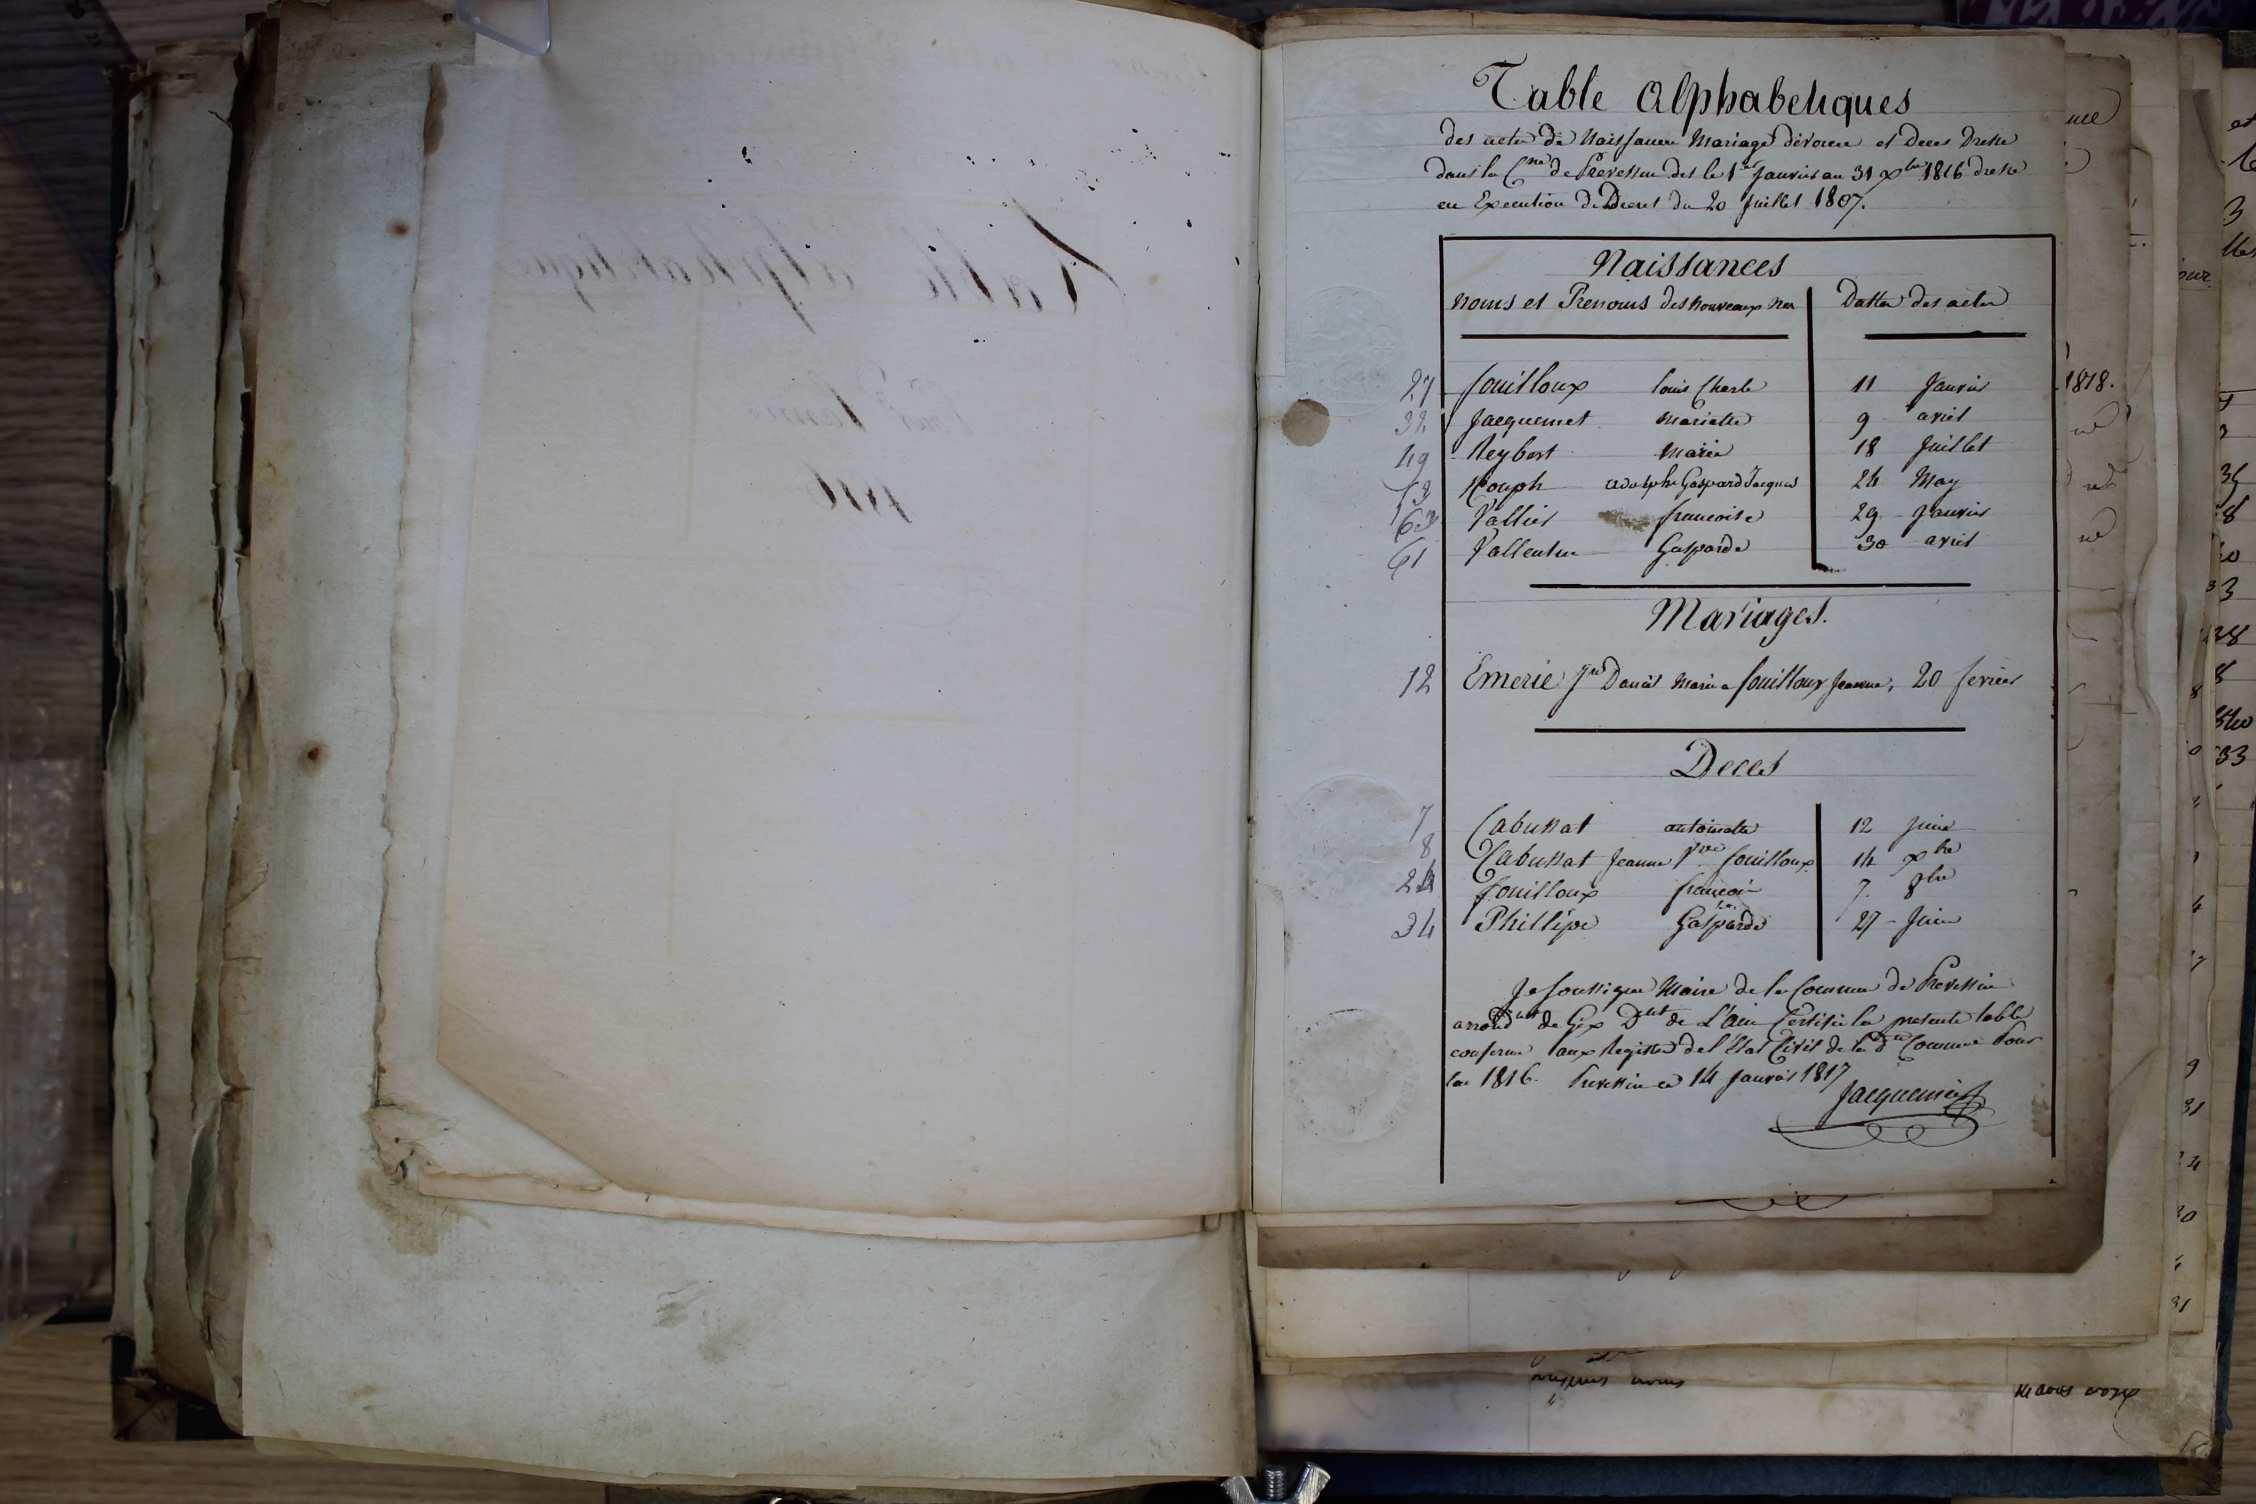 Table Alphabetiques
des actes de Naissance Mariage divorce et Deces Dressé
dans la Cne de Prevessin des le 1er Janvier au 31 xbre 1816 dressé
en Execution du Decret du 20 Juillet 1807.
Naissances
Noms et Prenoms des nouveaux nes Dattes des actes
27 fouilloux louis Charle 11 Janvier
32 Jacquemet mariette 9 avril
49 Reybert marie 18 Juillet
53 Rouph adolphe Gaspard Jacques 24 May
62 Vallier francoise 29 Janvier
61 Vallentin Gasparde 30 avril
Mariages.
12 Emerie Daniel Marie a fouilloux Jeanne, 20 fevrier
Deces
7 Cabussat antoinette 12 Juin
8 Cabussat Jeanne Vve fouilloux 14 xbre
24 fouilloux francois 7. 8bre
34 Phillipe Gasparde 27 Juin
Je soussigne Maire de la Commune de Prevessin
arrondnt de Gex Dnt de L'ain Certifie la presente table
conforme aux Registre de l'Etat Civil de la dte Commune Pour
lan 1816. Prevessin ce 14 Janvier 1817
Jacquemet
1818.